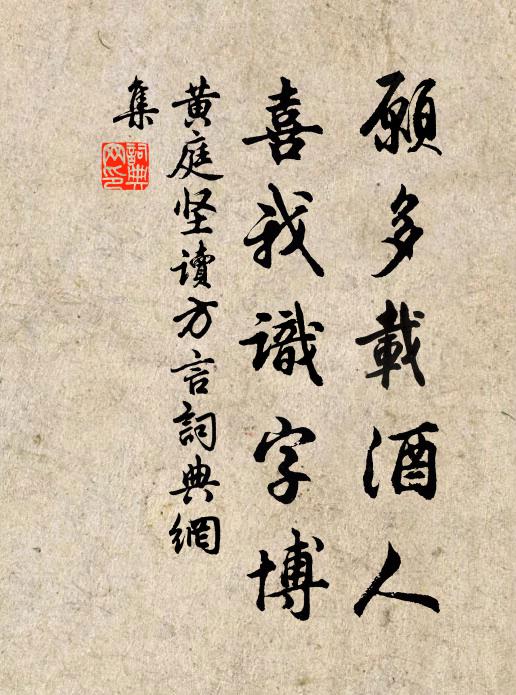 願多載酒人
喜我識字博
黄庭坚讀方言詞典網
集
詞典網印